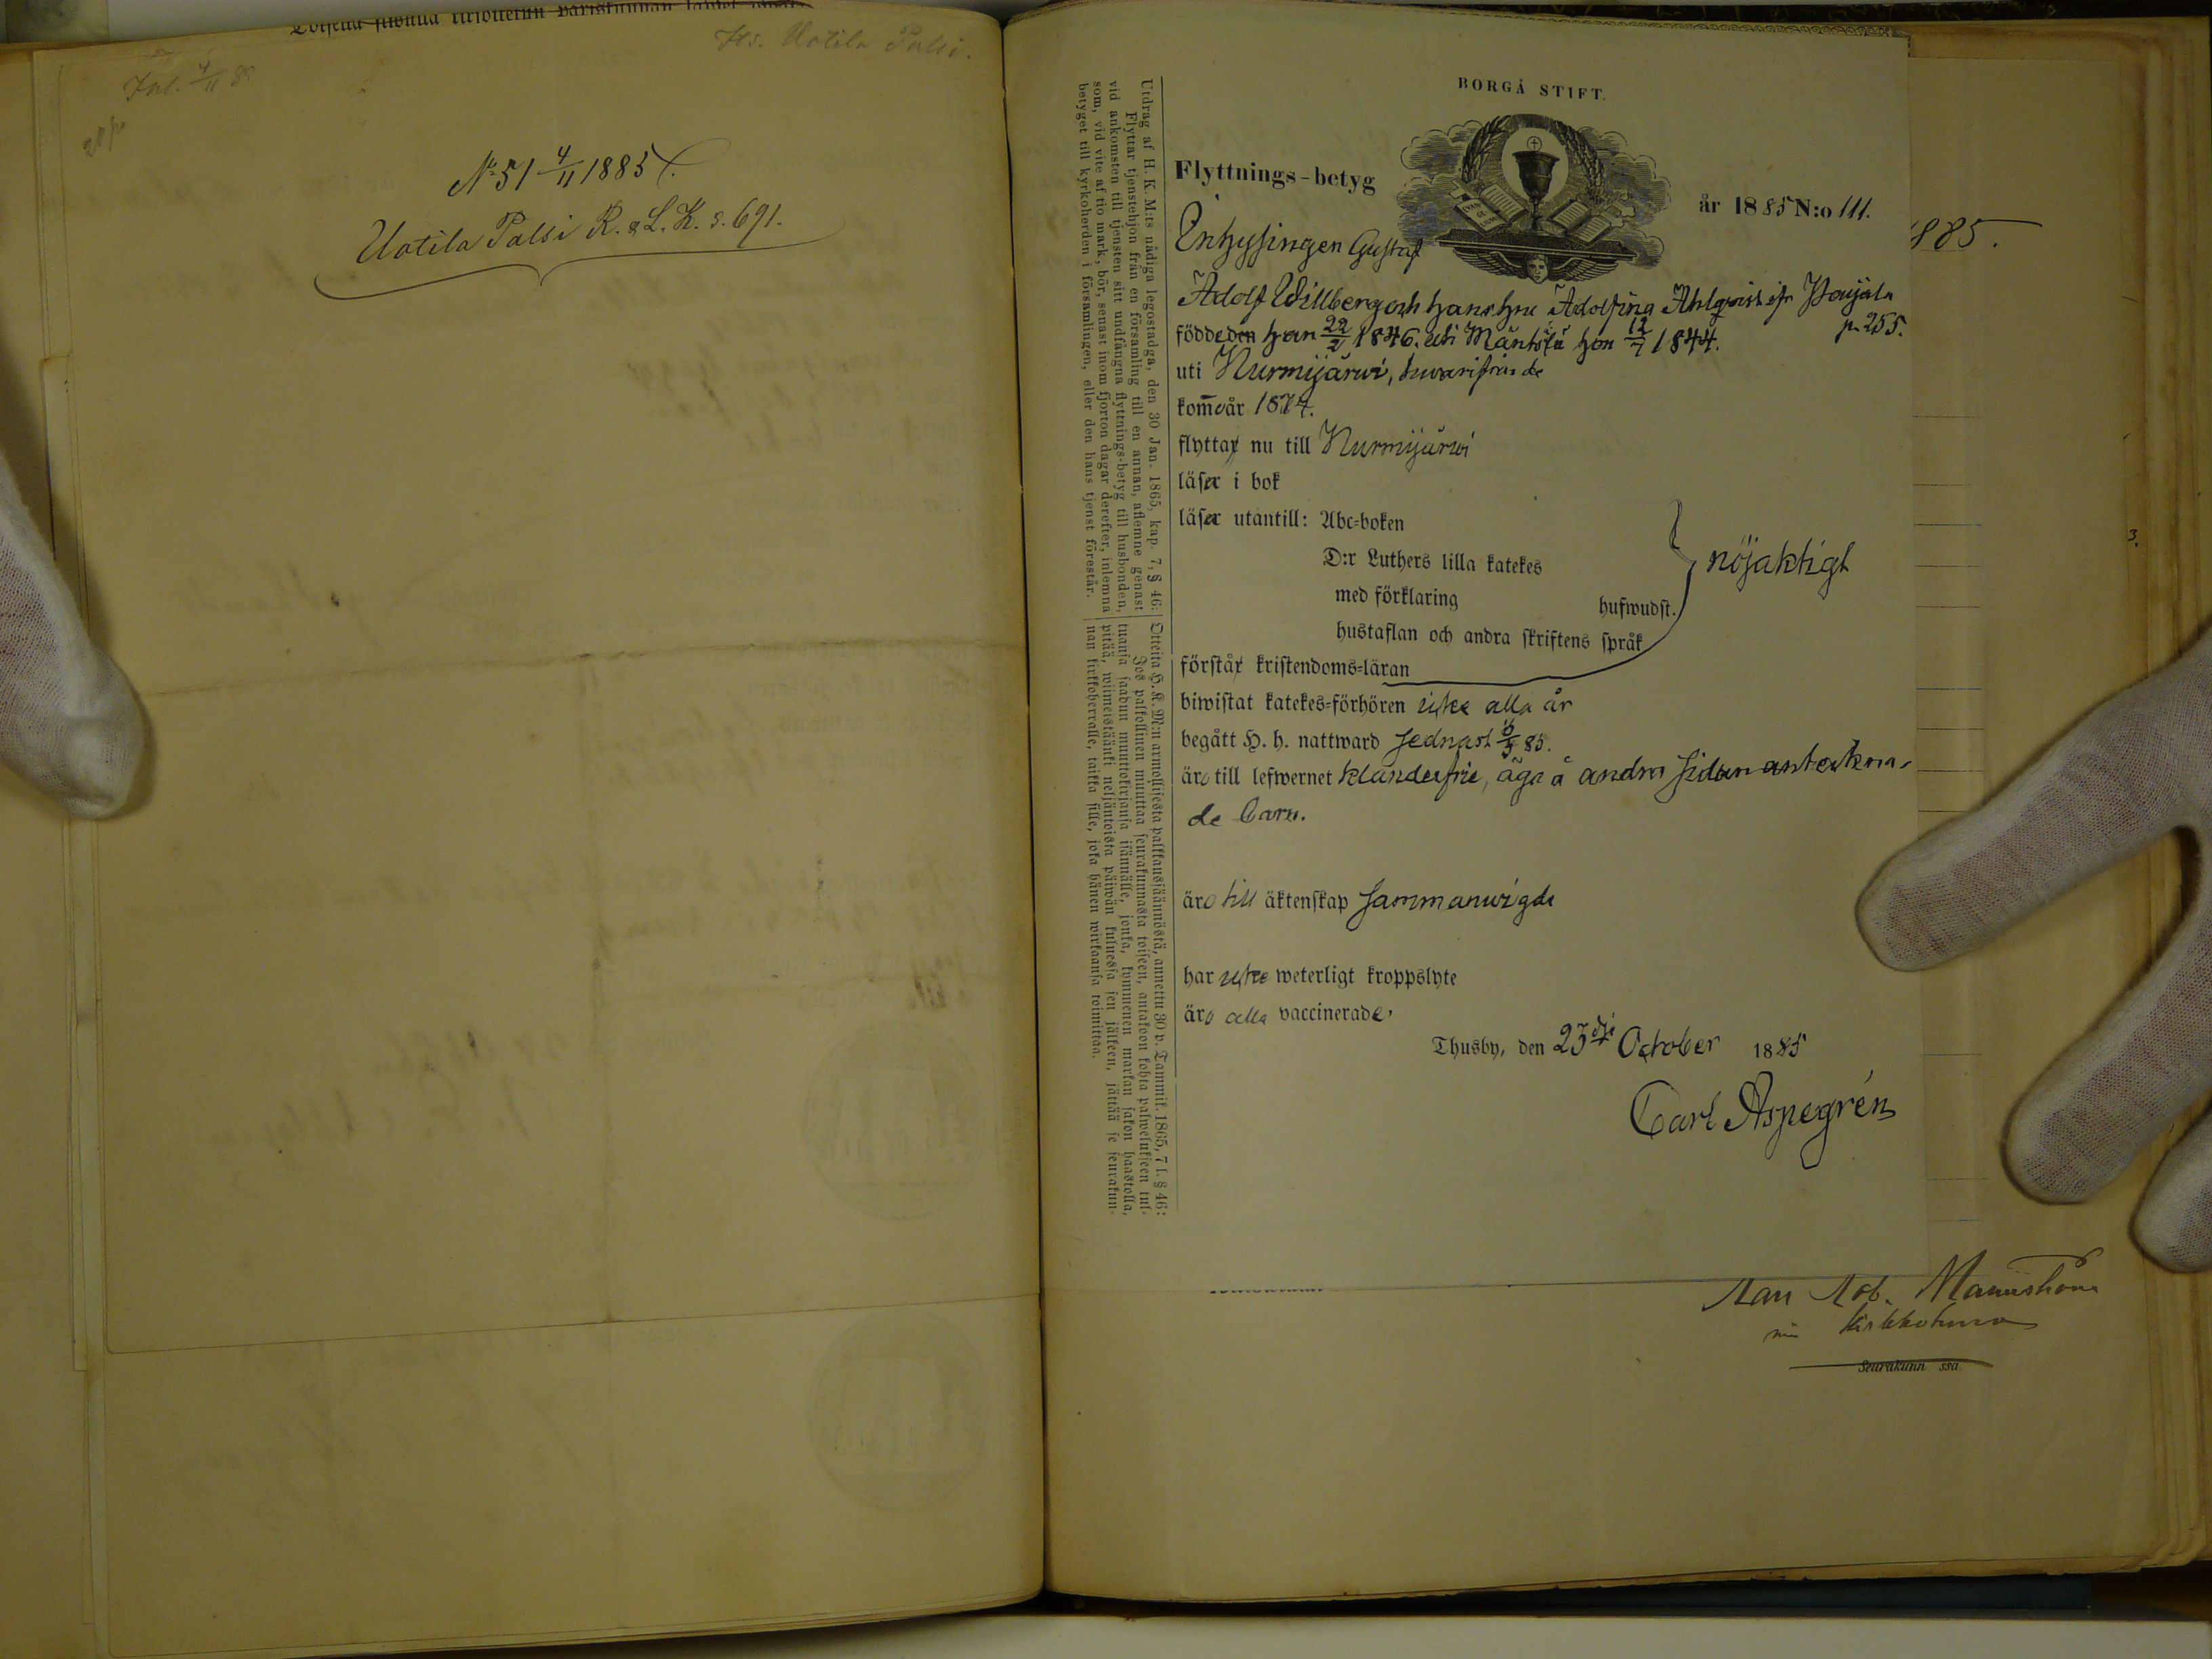 Hs. Uotila Palsi.
Inl. 4/11 85
No 51 4/11 1885
Uotila Palsi R. & L. K. s. 691.
BORGÅ STIFT.
Flyttnings-betyg
år 1885 N:o 111.
Inhysingen Gustaf
Adolf Willberg och hans hru Adolfina Ahlqvist ifr
p. 255.
födde den han 22/2 1846. uti Mäntsälä hon 12/7 1844.
uti Nurmijärwi, hwarifrån de
kom̄o år 1874.
flytta nu till Nurmijärwi
läsa i bok
läsa utantill: Abc-boken
D:r Luthers lilla katekes
med förklaring hufwudst.
hustaflan och andra skriftens språk
nöjaktigt
förstå kristendoms-läran
biwistat katekes-förhören icke alla år
begått H. h. nattward sednast 85.
äro till lefwernet klanderfrie, äga å andra sidan anteckna-
de barn.
äro till äktenskap sammanwigde
har icke weterligt kroppslyte
äro alla vaccinerade.
Thusby, den 23dje October 1885
Carl Aspegrén
Utdrag af H. K. M:ts nådiga legostadga, den 30 Jan. 1865, kap. 7, § 46:
Flyttar tjenstehjon från en församling till en annan, aflemne genast
vid ankomsten till tjensten sitt undfångna flyttnings-betyg till husbonden,
som, vid vite af tio mark, bör, senast inom fjorton dagar derefter, inlemna
betyget till kyrkoherden i församlingen, eller den hans tjenst förestår.
Otteita H. K. M:n armollisesta palkkaussäännöstä, annettu 30 p. Tammik. 1865, 7 l. § 46:
Jos palkollinen muuttaa seurakunnasta toiseen, antakoon kohta palwelukseen tul-
tuansa saadun muuttokirjansa isännälle, jonka, kymmenen markan sakon haastolla,
pitää, wiimeistäänki neljäntoista päiwän kuluessa sen jälkeen, jättää se seurakun-
nan kirkkoherralle, taikka sille, joka hänen wirkaansa toimittaa.
1885.
3.
seurakunn ssa.